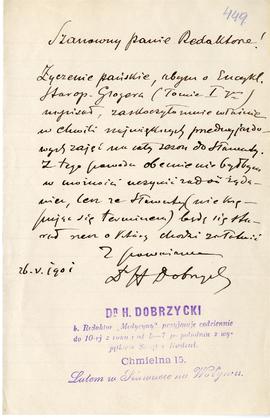 449
Szanowny panie Redaktorze!
Życzenie pańskie, abym o Encykl.
Starop. Glogera (Tomie I
napisał, zaskoczyło mnie właśnie
w chwili największych
zajęć na cały sezon do Sławuty.
Z tego powodu obecnie
w możności uczynić zadość żąda-
niu, lecz ze Sławuty (nie krę-
pując się terminem) będę się sta-
rał rzecz o którą chodzi załatwić
Z poważaniem
26.V.1901 Dr H Dobrzycki
DR H. DOBRZYCKI
b. Redaktor „Medycyny” przyjmuje codziennie
do 10-ej z rana i od 5—7 po południu z wy-
jątkiem Świąt i Niedziel.
Chmielna 15.
Latem w Sławucie na Wołyniu.